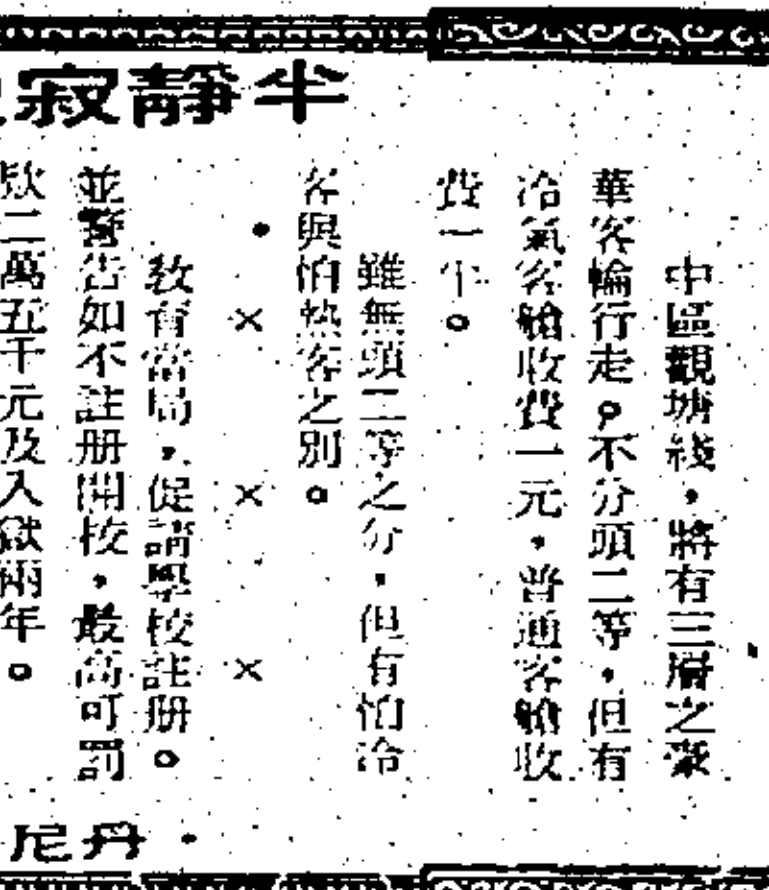 半靜寂
中區觀塘綫，將有三層之豪
華客輪行走，不分頭二等，但有
冷氣客艙收費一元，普通客艙收
費一半。
雖無頭二等之分，但有怕冷
客與怕熱客之別。
· × × ×
教育當局，促請學校註册。
並警告如不註册開校，最高可罰
欵二萬五千元及入獄兩年。
·丹尼